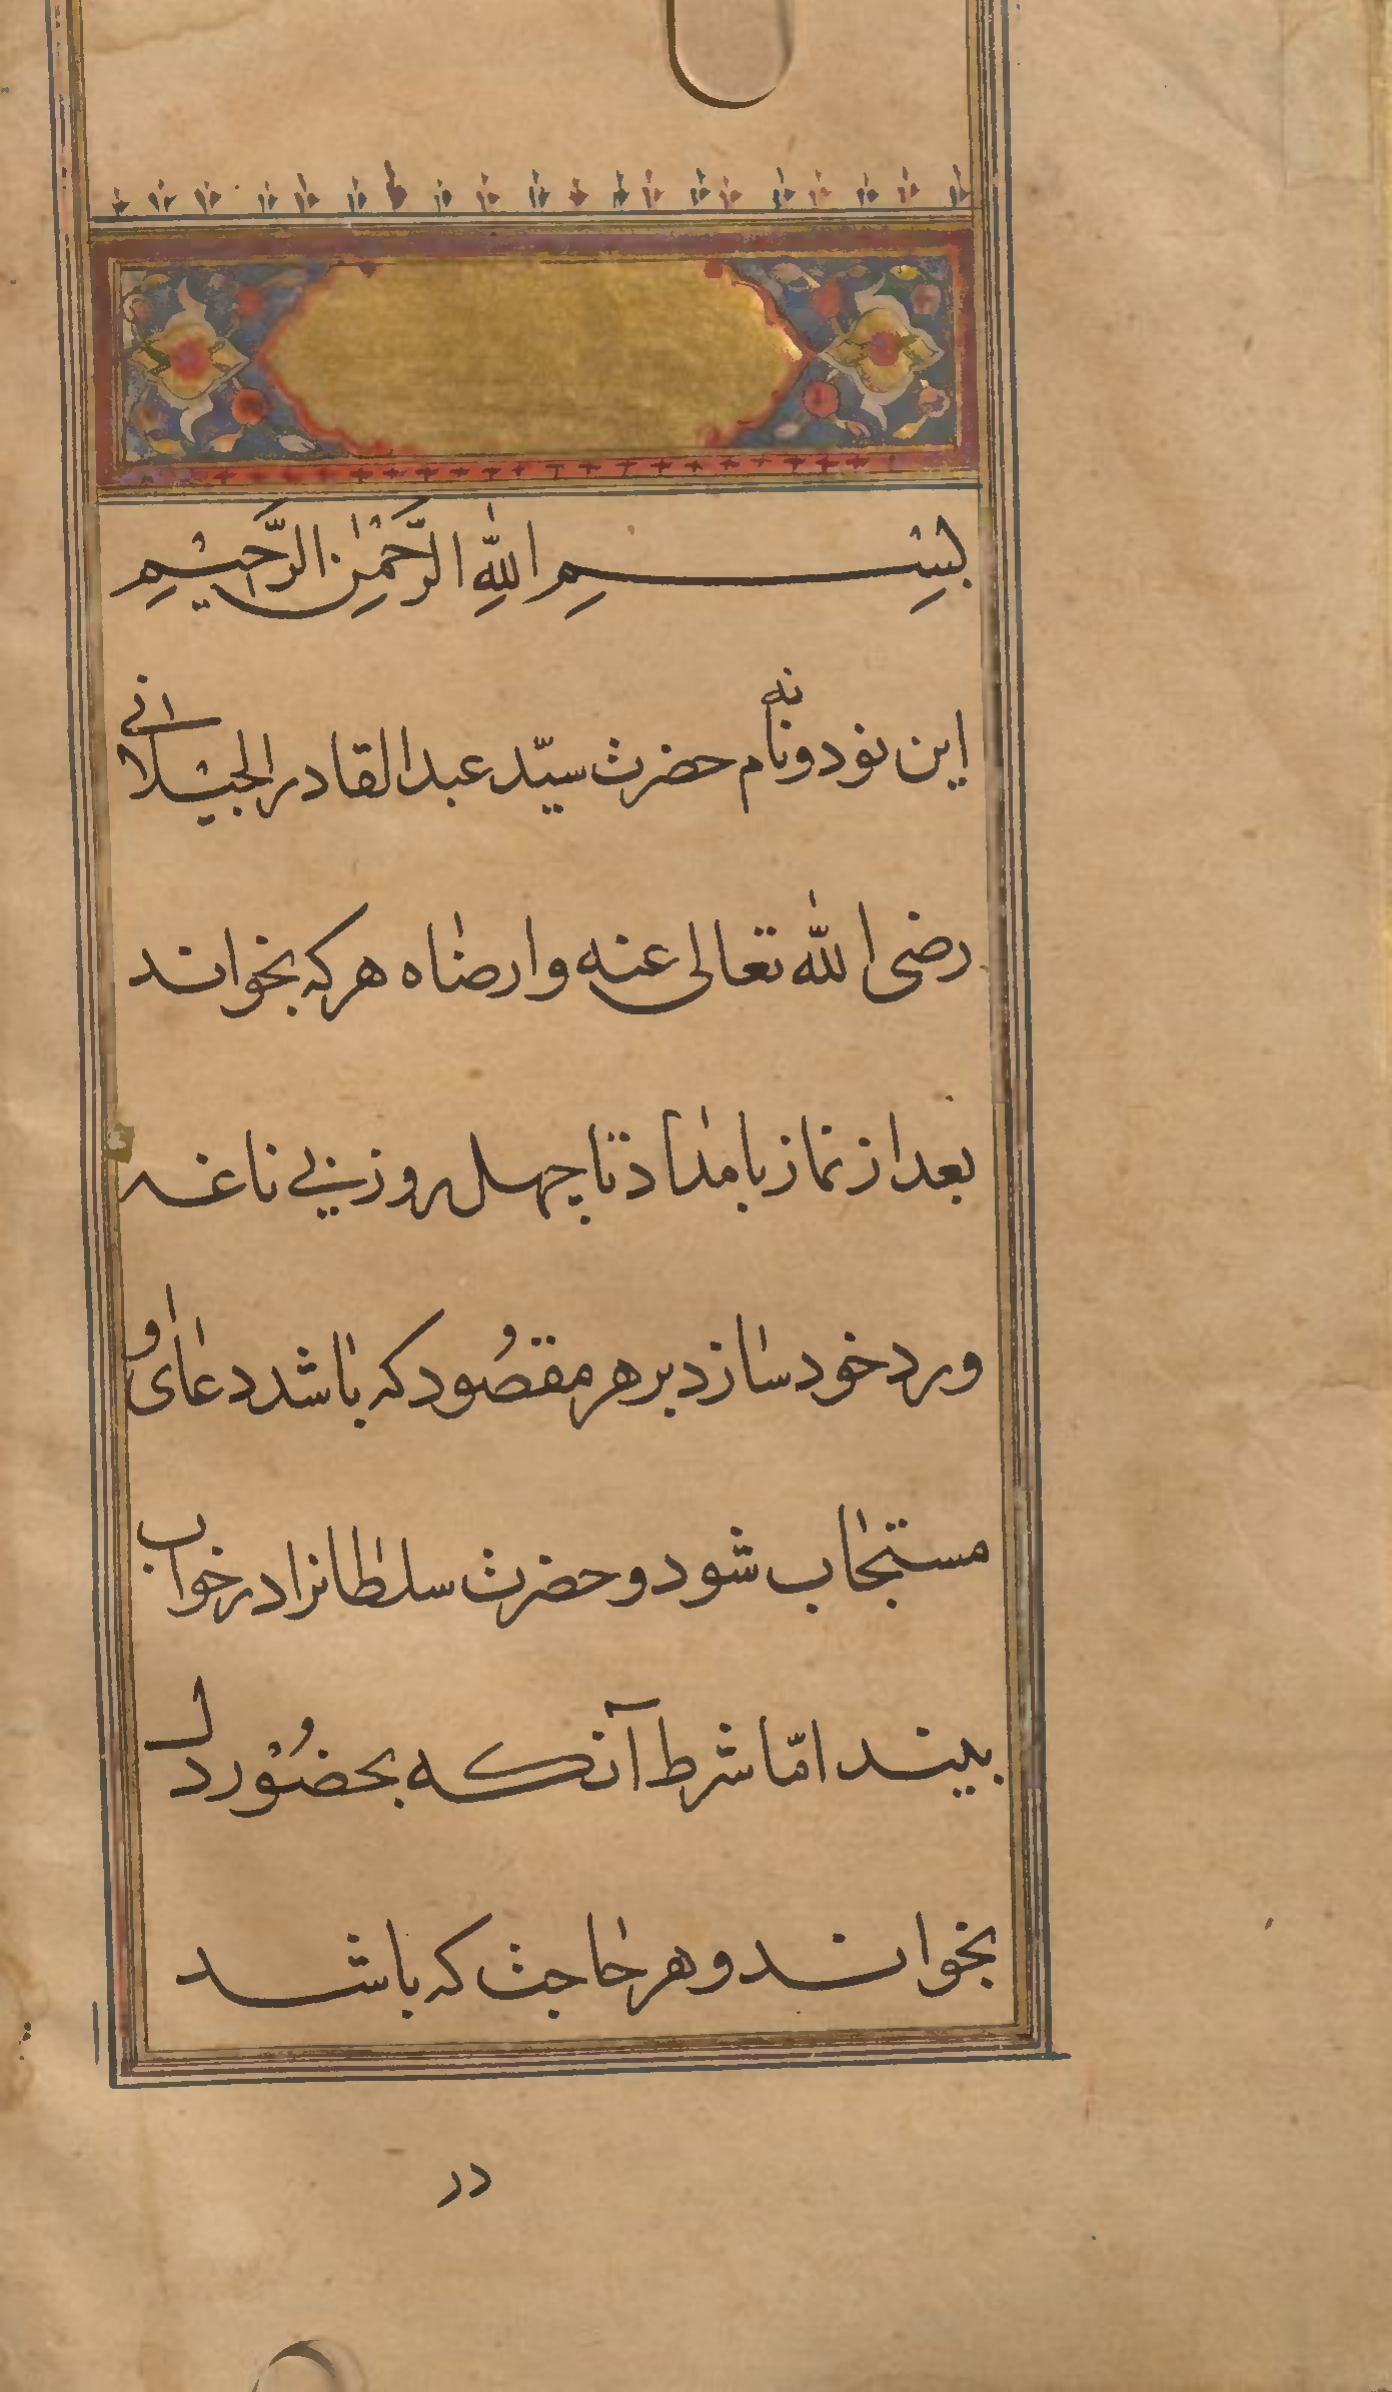 بِسْمِ اللّٰهِ الرَّحْمٰنِ الرَّحِيْمِ
این نود و نه نام حضرت سیّد عبدالقادر الجیلانی
رضی اللّٰه تعالی عنه و ارضاه هر که بخواند
بعد از نماز بامداد تا چهل روز بی ناغه
ورد خود سازد بر هر مقصُود که باشد دعای او
مستجاب شود و حضرت سلطانرا در خواب
بیند امّا شرط آنکه بحضُور دل
بخواند و هر حاجت که باشد
در